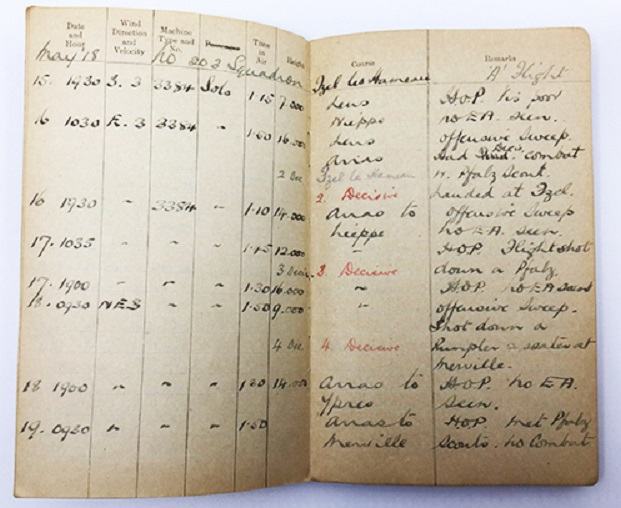 Date and Hour
Wind Direction and Velocity
Machine Type and No.
Passenger
Time in Air
Height
Course
Remarks
May '18 No 203 Squadron
Izel le Hameau 'A' Flight
15. 1930 S. 3 3384 Solo 1·15 7.000 Lens H.O.P. Vis poor
Nieppe no E.A. seen.
16 1030 E. 3 3384 " 1·50 16.000 Lens offensive Sweep.
Arras Had combat
2 Dec Izel le Hameau Pfalz Scout.
2. Decisive Landed at Izel.
16 1930 " 3384 " 1·10 14.000 Arras to offensive Sweep
Nieppe no E.A. seen.
17. 1035 " " " 1·45 12.000 " H.O.P. Flight shot
3 Decis. 3. Decisive down a Pfalz.
17. 1900 " " " 1·30 16.000 " H.O.P. no E.A. seen
18. 0930 NE3 " " 1·50 9.000 " offensive Sweep.
Shot down a
4 Dec 4. Decisive Rumpler 2 seater at
Merville.
18 1900 " " " 1 30 14.000 Arras to H.O.P. no E.A.
Ypres seen.
19. 0930 " " " 1·50 Arras to H.O.P. met Pfalz
Merville Scouts. no Combat